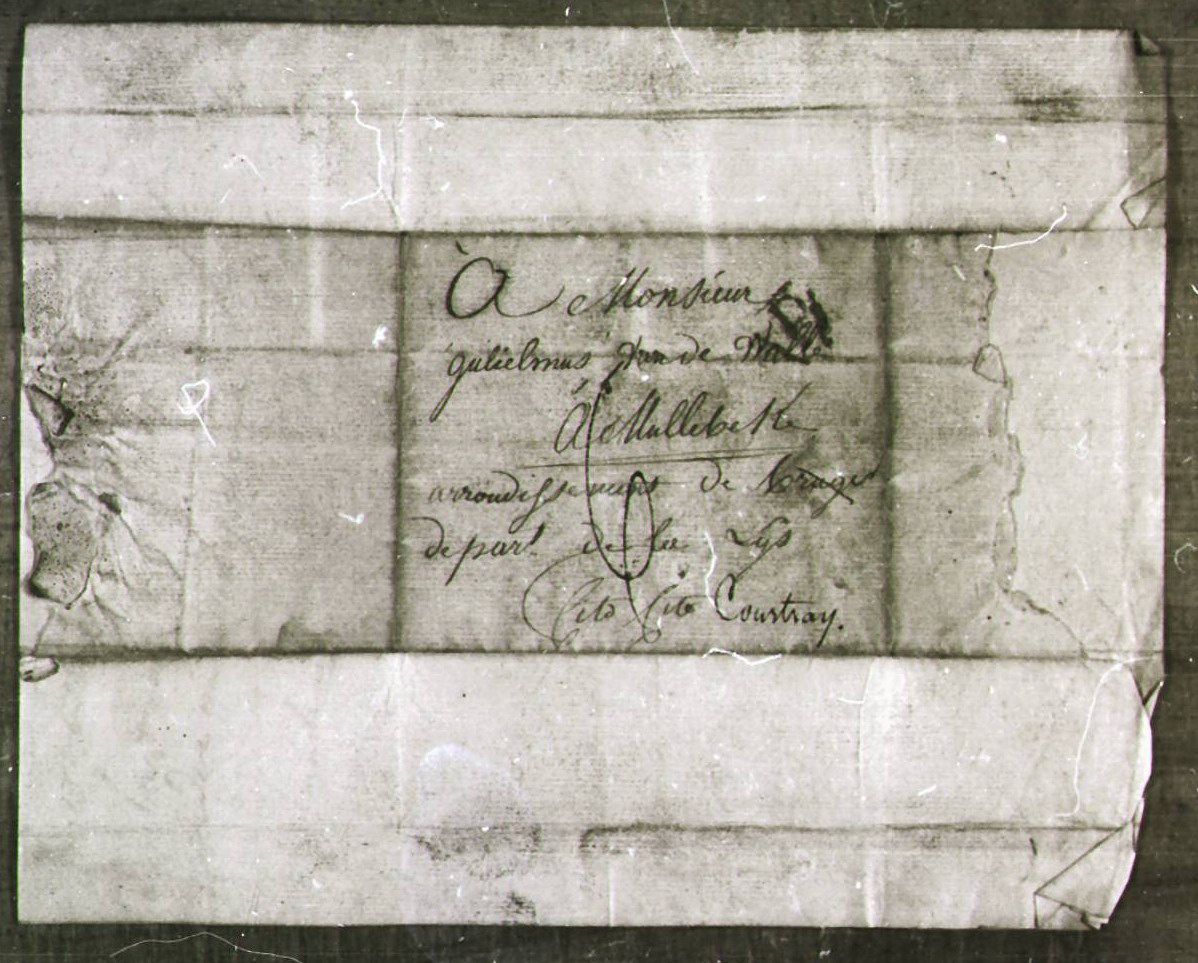 À Monsieur
gulielmus Van de Walle
à Mullebeke
arrondissement de bruges
depart. de la Lys
Cito Cito Courtray.